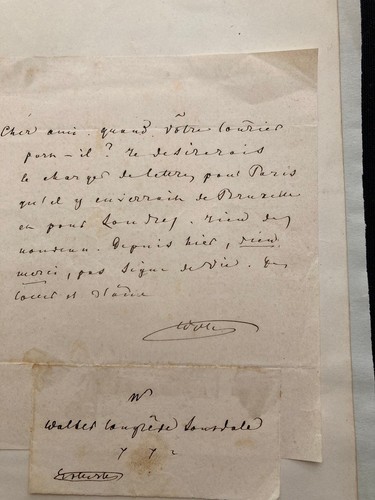 Cher ami. quand Votre Courier
part-il? Je desirerais
le charger de lettres pour Paris
qu'il y enverrait de Bruxelles
et pour Londres. rien de
nouveau. Depuis hier, rien
merci, pas signe de vie.
et
Mr
Walter Congrève Lonsdale